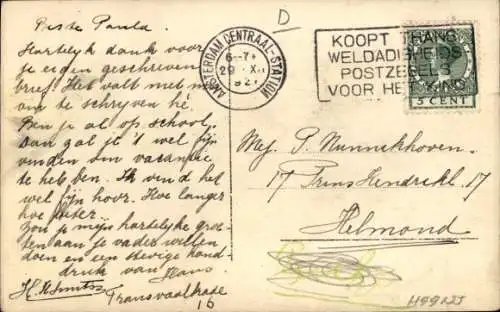 Beste Paula
Hartelijk dank voor
je eigen geschreven
brief. Het valt niet mee
om te schrijven hè.
Ben je al op school.
Dan zal je 't wel fijn
vinden om vacantie
te hebben. Ik vind het
wel fijn hoor. Hoe langer
hoe beter.
Zou je mijn hartelijke groe-
ten aan je vader willen
doen en een stevige hand
druk van Hans
H. Schmitz
Transvaalkade
16
D
AMSTERDAM CENTRAAL-STATION
6-7
29 XII
192
KOOPT THANS
WELDADIGHEIDS
POSTZEGELS
VOOR HET KIND
5 CENT
Mej. P. Nunnikhoven.
17 Prins Hendrikl. 17
Helmond
H99025